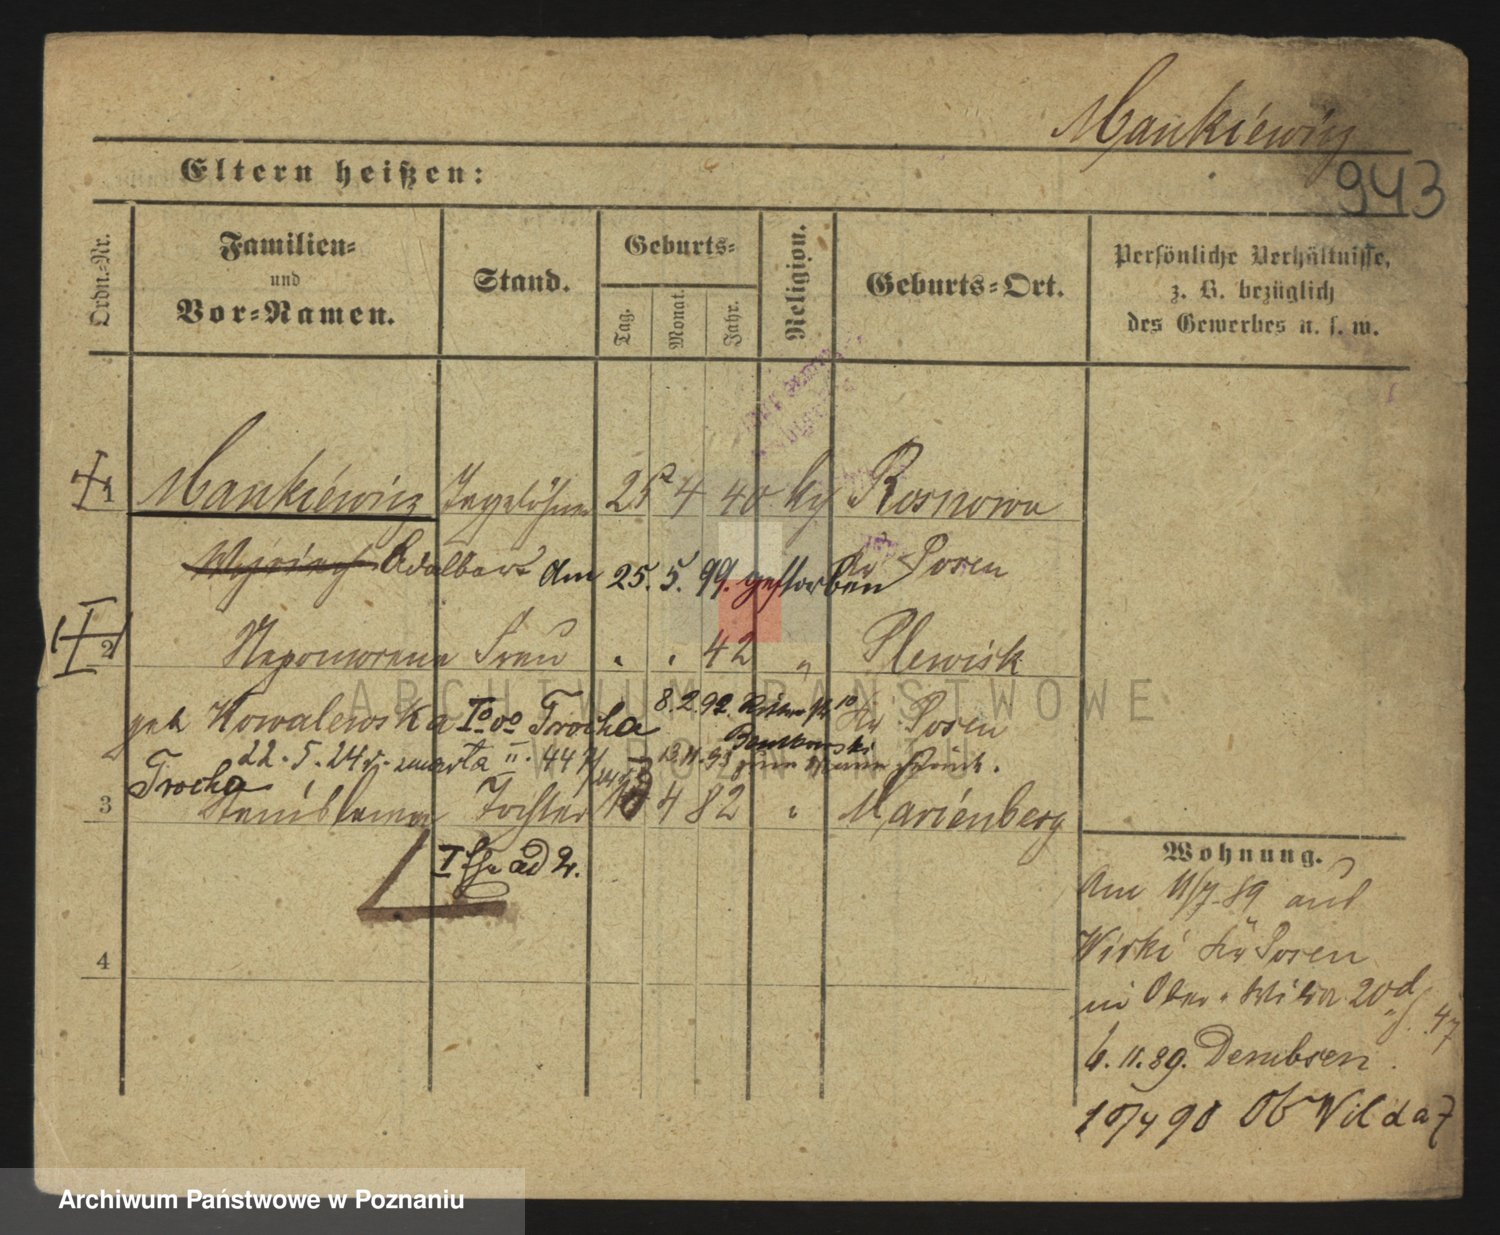 Mankiewicz
943
Eltern heißen:
Ordn.-Nr.
Familien- und Vor-Namen.
Stand.
Geburts-
Tag.
Monat.
Jahr.
Religion.
Geburts-Ort.
Persönliche Verhältnisse, z. B. bezüglich des Gewerbes u. s. w.
1 Mankiewicz Tagelöhner 25 4 40 kth Rosnowo
Adalbert am 25. 5. 99. gestorben Kr Posen
2 Nepomucena Frau " " 42 " Plewisk
geb Kowalewska Io vo Trocha 8.2.92. Kr Posen
Trocha 22.5.24 r. zmarła II. 447/ 13.11.93
3 Stanislawa Tochter 4 82 " Marienberg
I Ehe ad 2.
4
Wohnung.
Am 11/7.89 aus
Wirki Kr Posen
in Ober-Wilda 20d
47
6.11.89. Dembsen.
15/4 90 Ob Wilda 7
ARCHIWUM PAŃSTWOWE
W POZNANIU
Archiwum Państwowe w Poznaniu